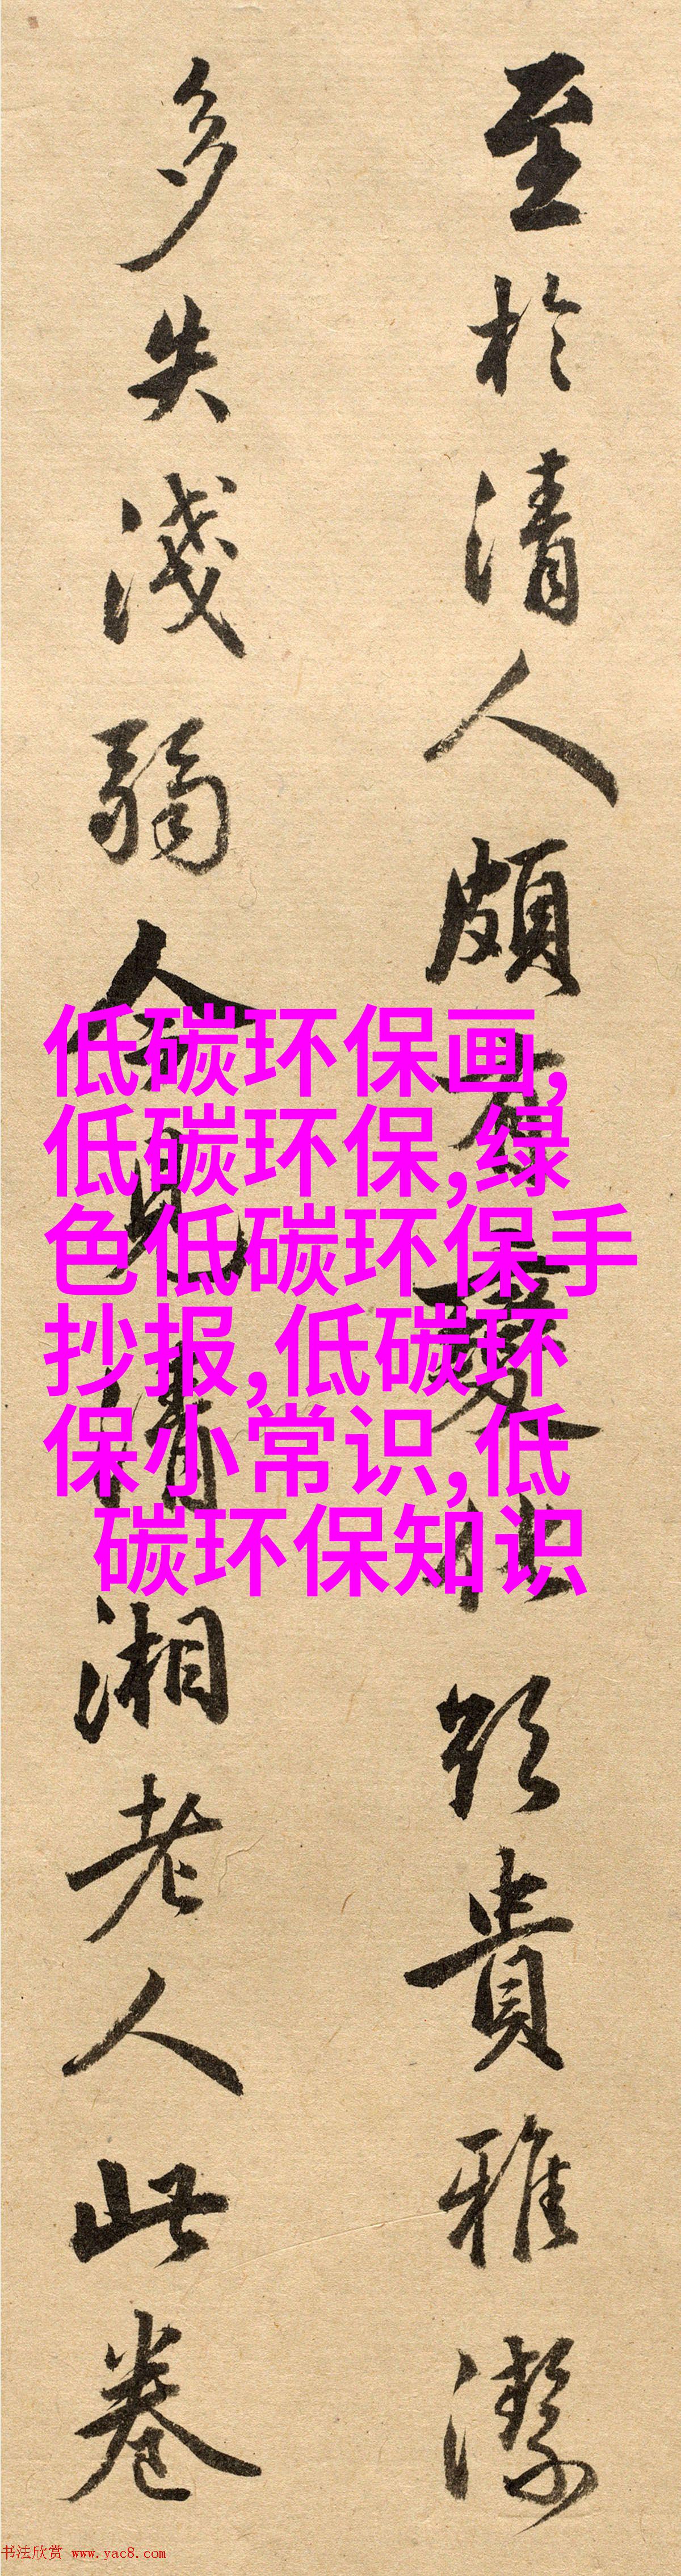 至於清人頗有變化然貴雅潔
多失淺弱今見清湘老人此卷
低碳环保画,
低碳环保,绿
色低碳环保手
抄报,低碳环
保小常识,低
碳环保知识
书法欣赏 www.yac8.com